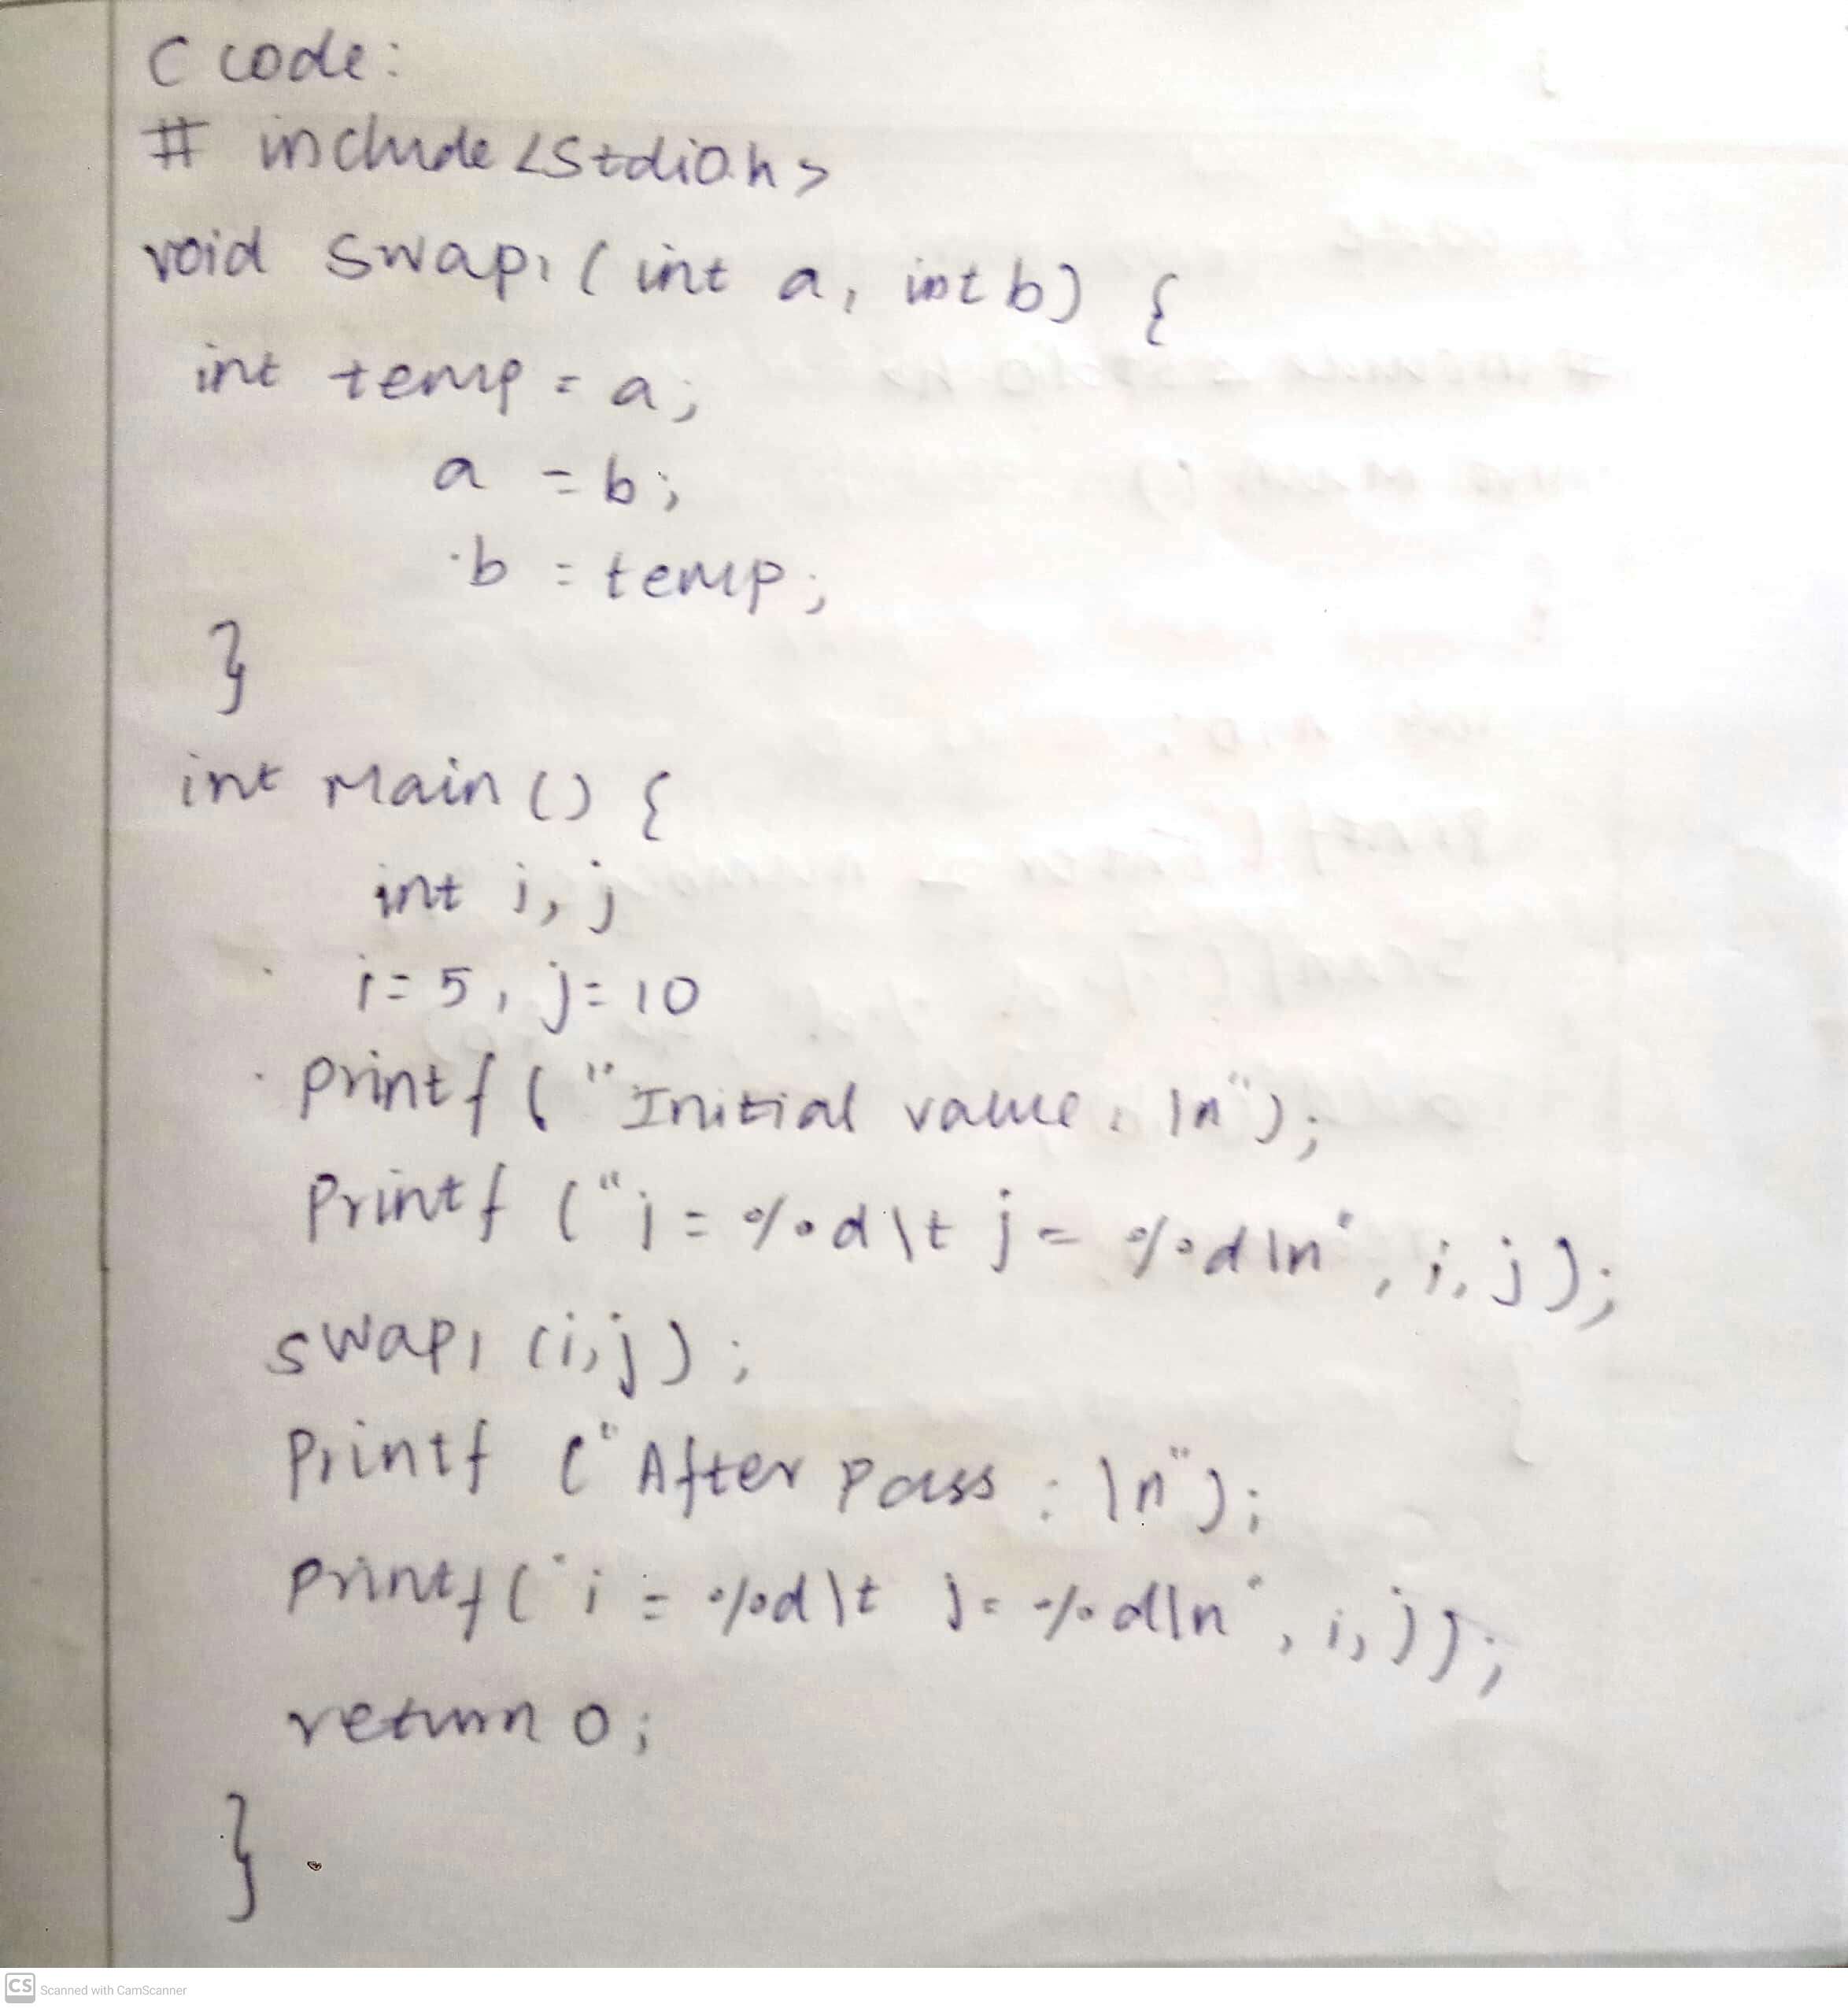 C code:
# include <Stdio.h>
void swap1 ( int a, int b) {
int temp = a;
a = b;
b = temp;
}
int Main () {
int i, j
i = 5, j = 10
printf ( "Initial value. \n");
Printf ("i = %d\t j = %d\n", i, j);
swap1 (i,j);
Printf ("After Pass : \n");
printf("i = %d\t j = %d\n", i, j);
return 0;
}
CS Scanned with CamScanner